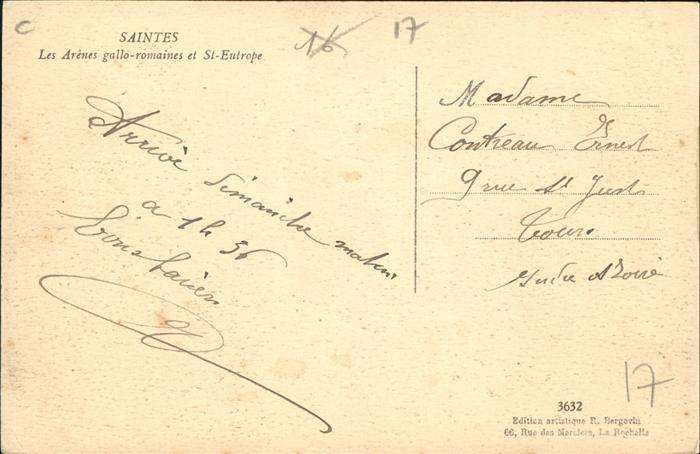 C
SAINTES
Les Arènes gallo-romaines et St-Eutrope
16
17
Arrive dimanche matin
a 1h 36
Madame
Ernest
9 rue St Just
Tours
Indre et Loire
17
3632
Edition artistique R. Bergevin
66, Rue des Merciers, La Rochelle